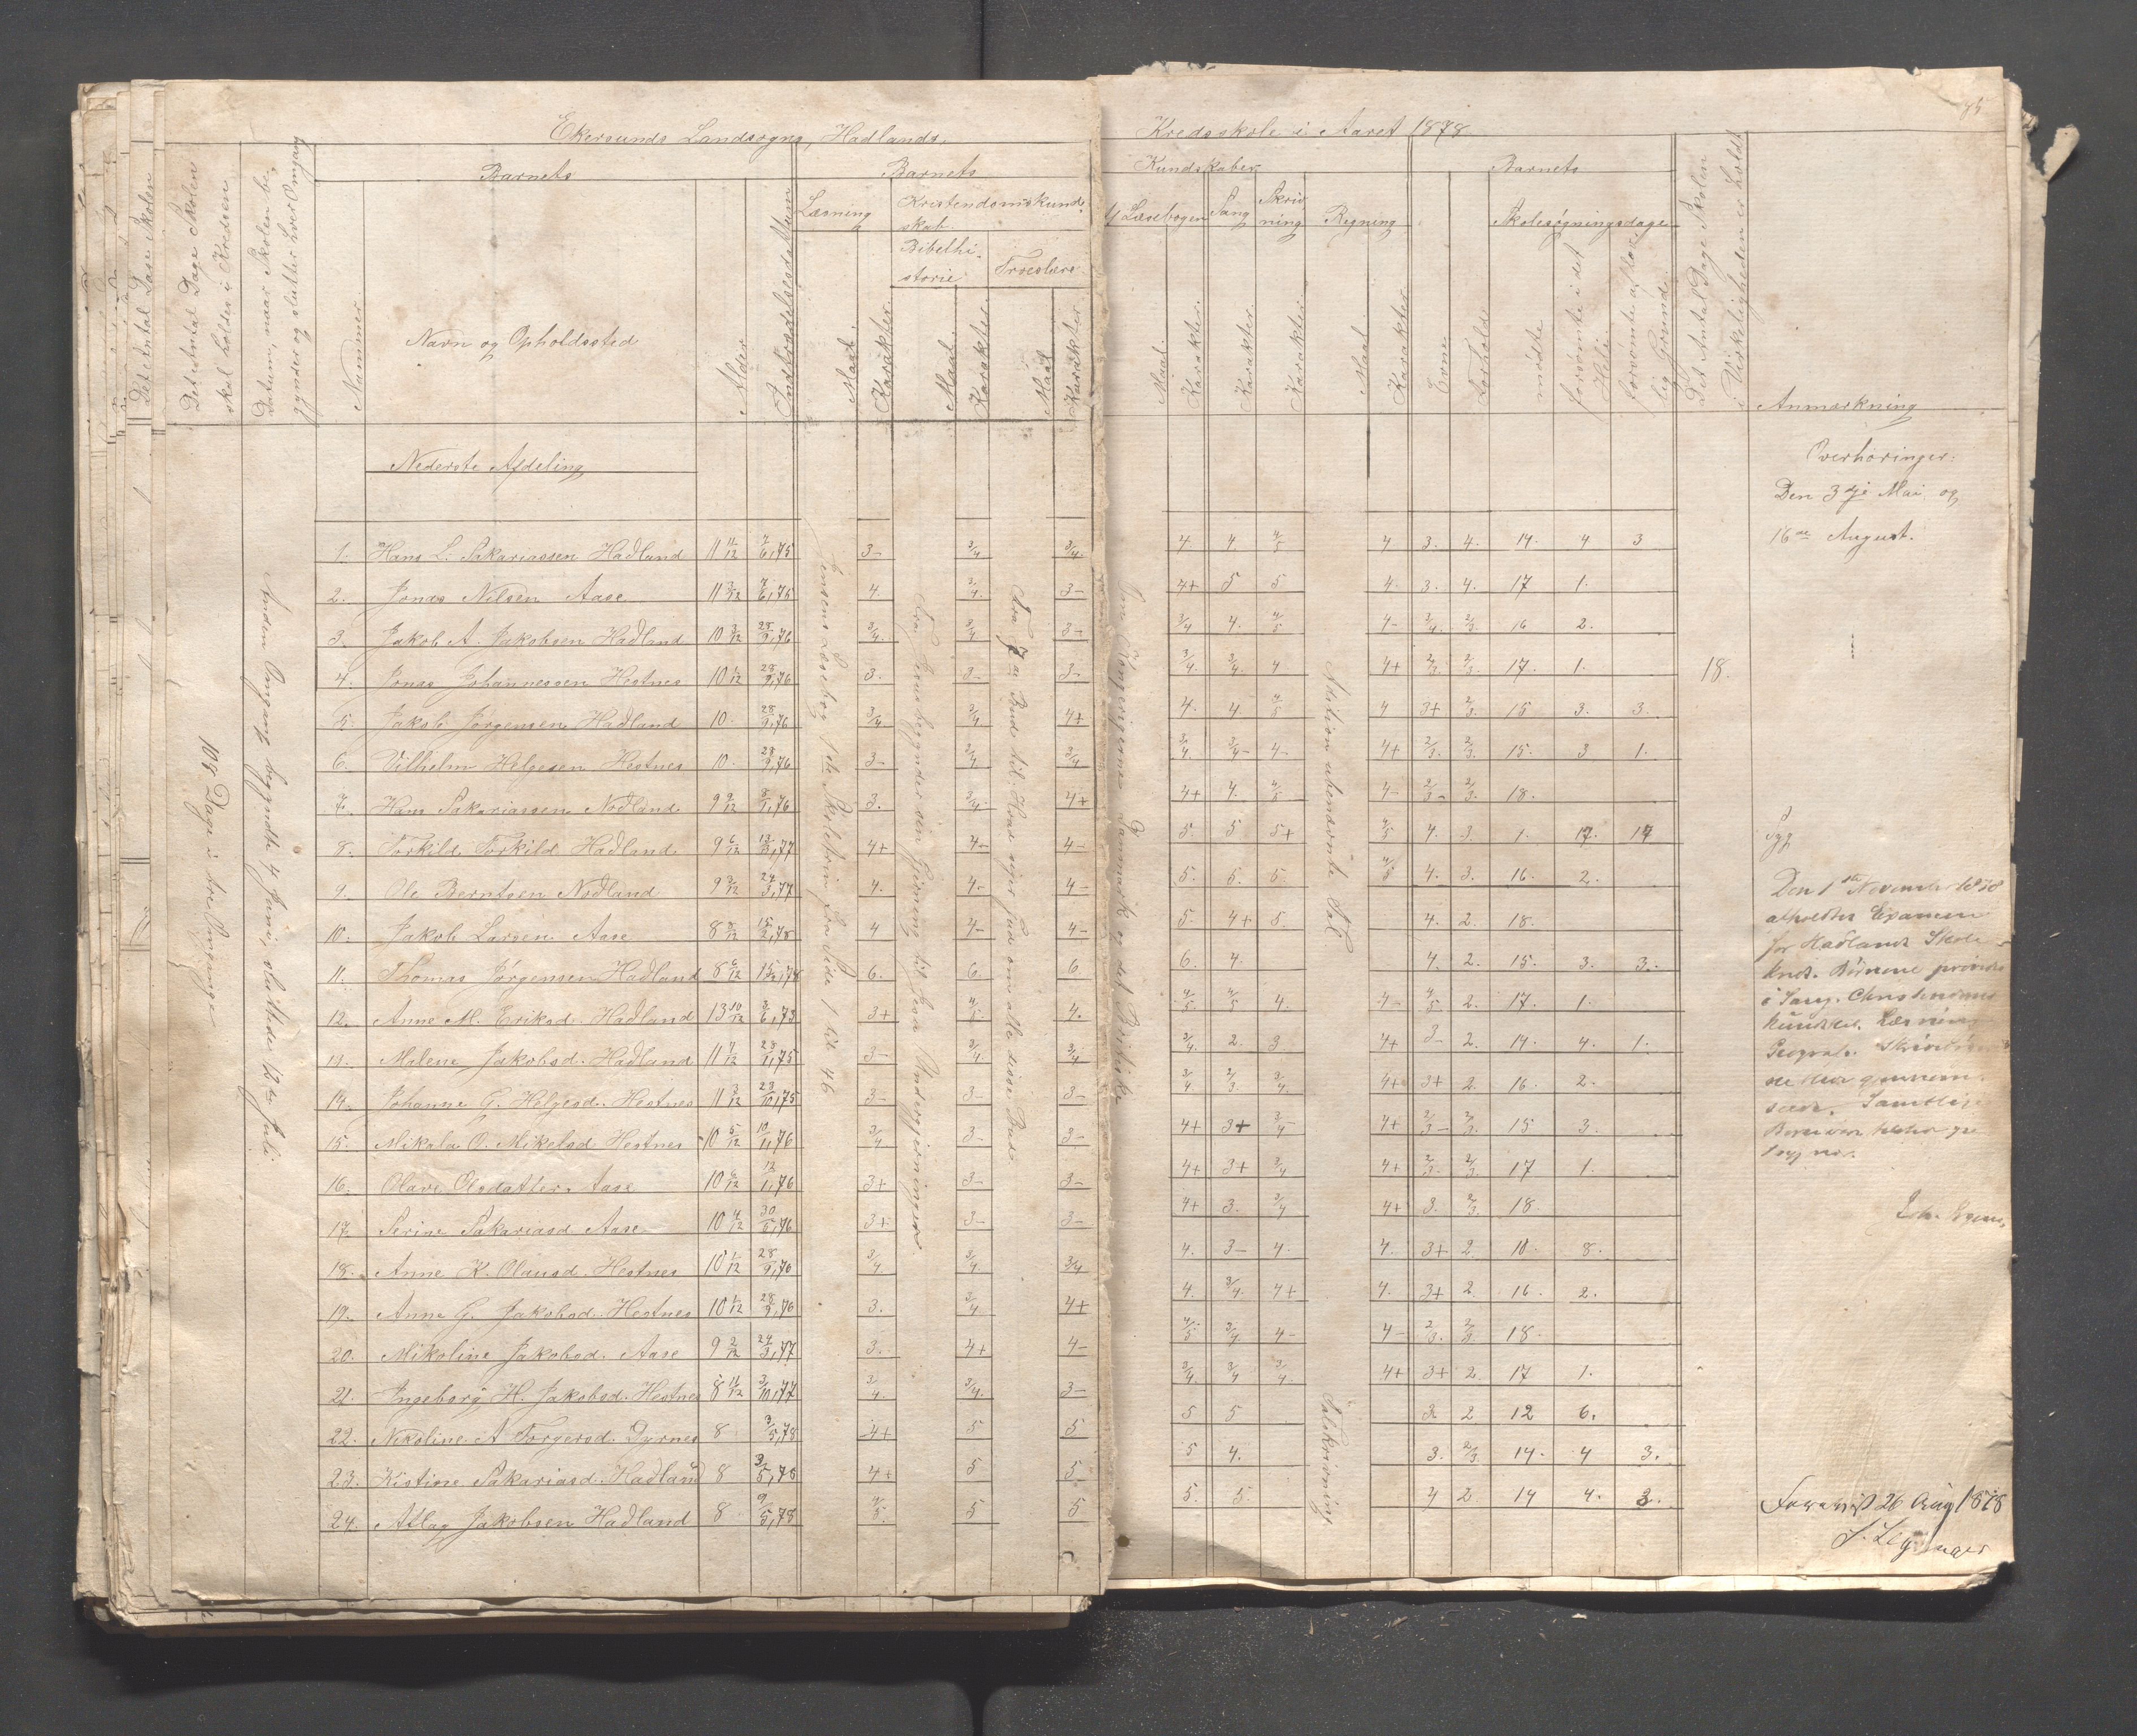 Ekersunds Landsogns, Hadlands, Kredsskole i Aaret 1878
Det Antal Dage Skolen skal holdes i Kredsen
Datum, naar Skolen begynder og slutter hver Omgang
Barnets
Nummer
Navn og Opholdssted
Alder
Indtrædelsesdatum
Barnets
Kundskaber
Læsning
Maal.
Karakter.
Kristendomskundskab.
Bibelhistorie
Maal.
Karakter.
Troeslære
Maal
Karakter
Læsebogen
Maal.
Karakter.
Sang
Karakter.
Skrivning
Karakter
Regning
Maal
Karakter
Barnets
Evne
Forhold
Skolesøgningsdage
mødte
forsømte i det Hele.
forsømte af lovlig Grund.
Det Antal Dage Skolen i Virkeligheden er holdt
Anmærkning
Nederste Afdeling
108 Dage i tre Omgange
Anden Omgang begyndte 4 Juni, sluttede 12te Juli
Jensens Læsebog 1ste Skoletrin fra Side 1 til 46
Fra Jesus begynder sin Gjerning til hans Undergjerninger
Fra 7de Bud til: Hvad siger Gud om alle disse Bud
Addition ubenævnte Tal
Talskrivning
1. Hans L. Sakariassen Hadland 11 11/12 7/6,75 3- 3/4 3/4. 4 4. 4/5 4 3. 4. 14. 4 3
2. Jonas Nilsen Aase 11 3/12 7/6,76 4. 3/4. 3- 4+ 5 5 4. 3. 4. 17 1.
3. Jakob A. Jakobsen Hadland 10 3/12 28/9,76 3/4. 3/4 3- 3/4 4. 4/5 4- 3/4. 2/3. 16 2.
4. Jonas Johannessen Hestnes 10 1/12 28/9,76 3. 3- 3- 3/4. 3/4. 4 4+ 2/3 2/3. 17. 1.
5. Jakob Jørgensen Hadland 10. 28/9,76 3/4 3/4 4+ 4. 4. 4/5 4 3+ 2/3. 15 3. 3.
6. Vilhelm Helgesen Hestnes 10. 28/9,76 3- 3/4 3/4 3/4. 3/4- 4- 4+ 2/3. 2/3. 15. 3 1.
7. Hans Sakariassen Nodland. 9 9/12 8/1,76 3. 3/4. 4+ 4+ 4. 4/5 4- 2/3- 2/3. 18.
8. Torkild Torkild. Hadland. 9 6/12 13/3,77 4+ 4- 4- 5. 5 5+ 4/5 4. 3. 1. 17. 17 Syg
9. Ole Berntsen Nodland 9 3/12 24/3,77 4. 4- 4- 5. 5. 5. 4/5 4. 3. 16. 2.
10. Jakob Larsen Aase 8 8/12 15/2,78 4 4- 4- 5. 4+ 5. 4. 2 18.
11. Thomas Jørgensen Hadland 8 6/12 15/2,78 6. 6. 6. 6. 4. 4. 2. 15. 3. 3.
12. Anne M. Eriksd. Hadland 13 10/12 3/6,73 3+ 4/5 4. 4/5 4/5 4. 4- 4/5 2. 17. 1.
13. Milene Jakobsd. Hadland 11 7/12 28/1,75 3- 3/4 3/4 3/4. 2. 3 4+ 3- 2. 14. 4. 1.
14. Johanne G. Helgesd. Hestnes 11 3/12 23/10,75 3- 3- 3- 3/4 2/3. 3/4. 4+ 3+ 2. 16. 2.
15. Mikala O. Mikelsd Hestnes 10 5/12 10/11,76 3/4 3- 3- 4+ 3+ 3/4- 4+ 2/3- 2/3. 15 3.
16. Olave Olsdatter. Aase 10 6/12 12/1,76 3+ 3- 3- 4+ 3+ 3/4 4+ 2/3. 2/3. 17 1.
17. Serine Sakariasd Aase 10 4/12 30/5,76 3+ 3- 3- 4+ 3. 3/4 4+ 3. 2/3. 18.
18. Anne K. Olausd. Hestnes 10 1/12 28/9,76 3/4 3/4. 3/4 4. 3- 4. 4. 3+ 2. 10. 8.
19. Anne G. Jakobsd. Hestnes 10 1/12 28/9,76 3. 3/4 4+ 4. 3/4. 4+ 4. 3+ 2. 16. 2.
20. Mikoline Jakobsd. Aase 9 2/12 24/3,77 3. 4+ 4- 4/5 3/4 4- 4- 2/3. 2/3. 18.
21. Ingeborg H. Jakobsd. Hestnes 8 11/12 3/10,77 3/4. 3/4. 3- 3/4. 3/4 3/4. 4+ 3+ 2. 17 1.
22. Nikoline A Torgersd. Dyrnes 8 3/5,78 4+ 5 5 5 5 3 2 12 6.
23. Kistine Sakariasd. Hadland 8 3/5,78 4+ 5 5 5 4. 3. 2/3. 14. 4 3.
24. Atlag Jakobsen Hadland 8 9/5,78 4/5. 5 5 5. 5. 4 2 14 4. 3.
18.
Overhøringer:
Den 3dje Mai og
16de August.
Den 1ste November 1878
afholdtes Examen
for Hadlands Skole-
kreds. Børnene prøvedes
i Sang, Christendoms
kundskab. Læsning
Geografi.
Forevist 26 Aug 1878